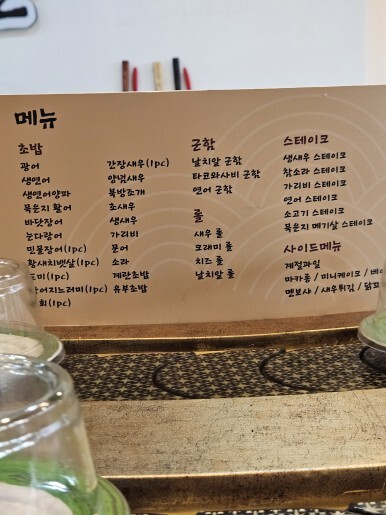 메뉴
초밥
광어
생연어
생연어양파
묵은지 활어
바닷장어
눈다랑어
민물장어(1pc)
황새치뱃살(1pc)
도미(1pc)
(1pc)
회(1pc)
간장새우(1pc)
양념새우
북방조개
초새우
생새우
가리비
문어
소라
계란초밥
유부초밥
군함
날치알 군함
타코와사비 군함
연어 군함
롤
새우 롤
크래미 롤
치즈 롤
날치알 롤
스테이크
생새우 스테이크
참소라 스테이크
가리비 스테이크
연어 스테이크
소고기 스테이크
묵은지 메기살 스테이크
사이드메뉴
계절과일
마카롱 / 미니케이크 /
멘보샤 / 새우튀김 /